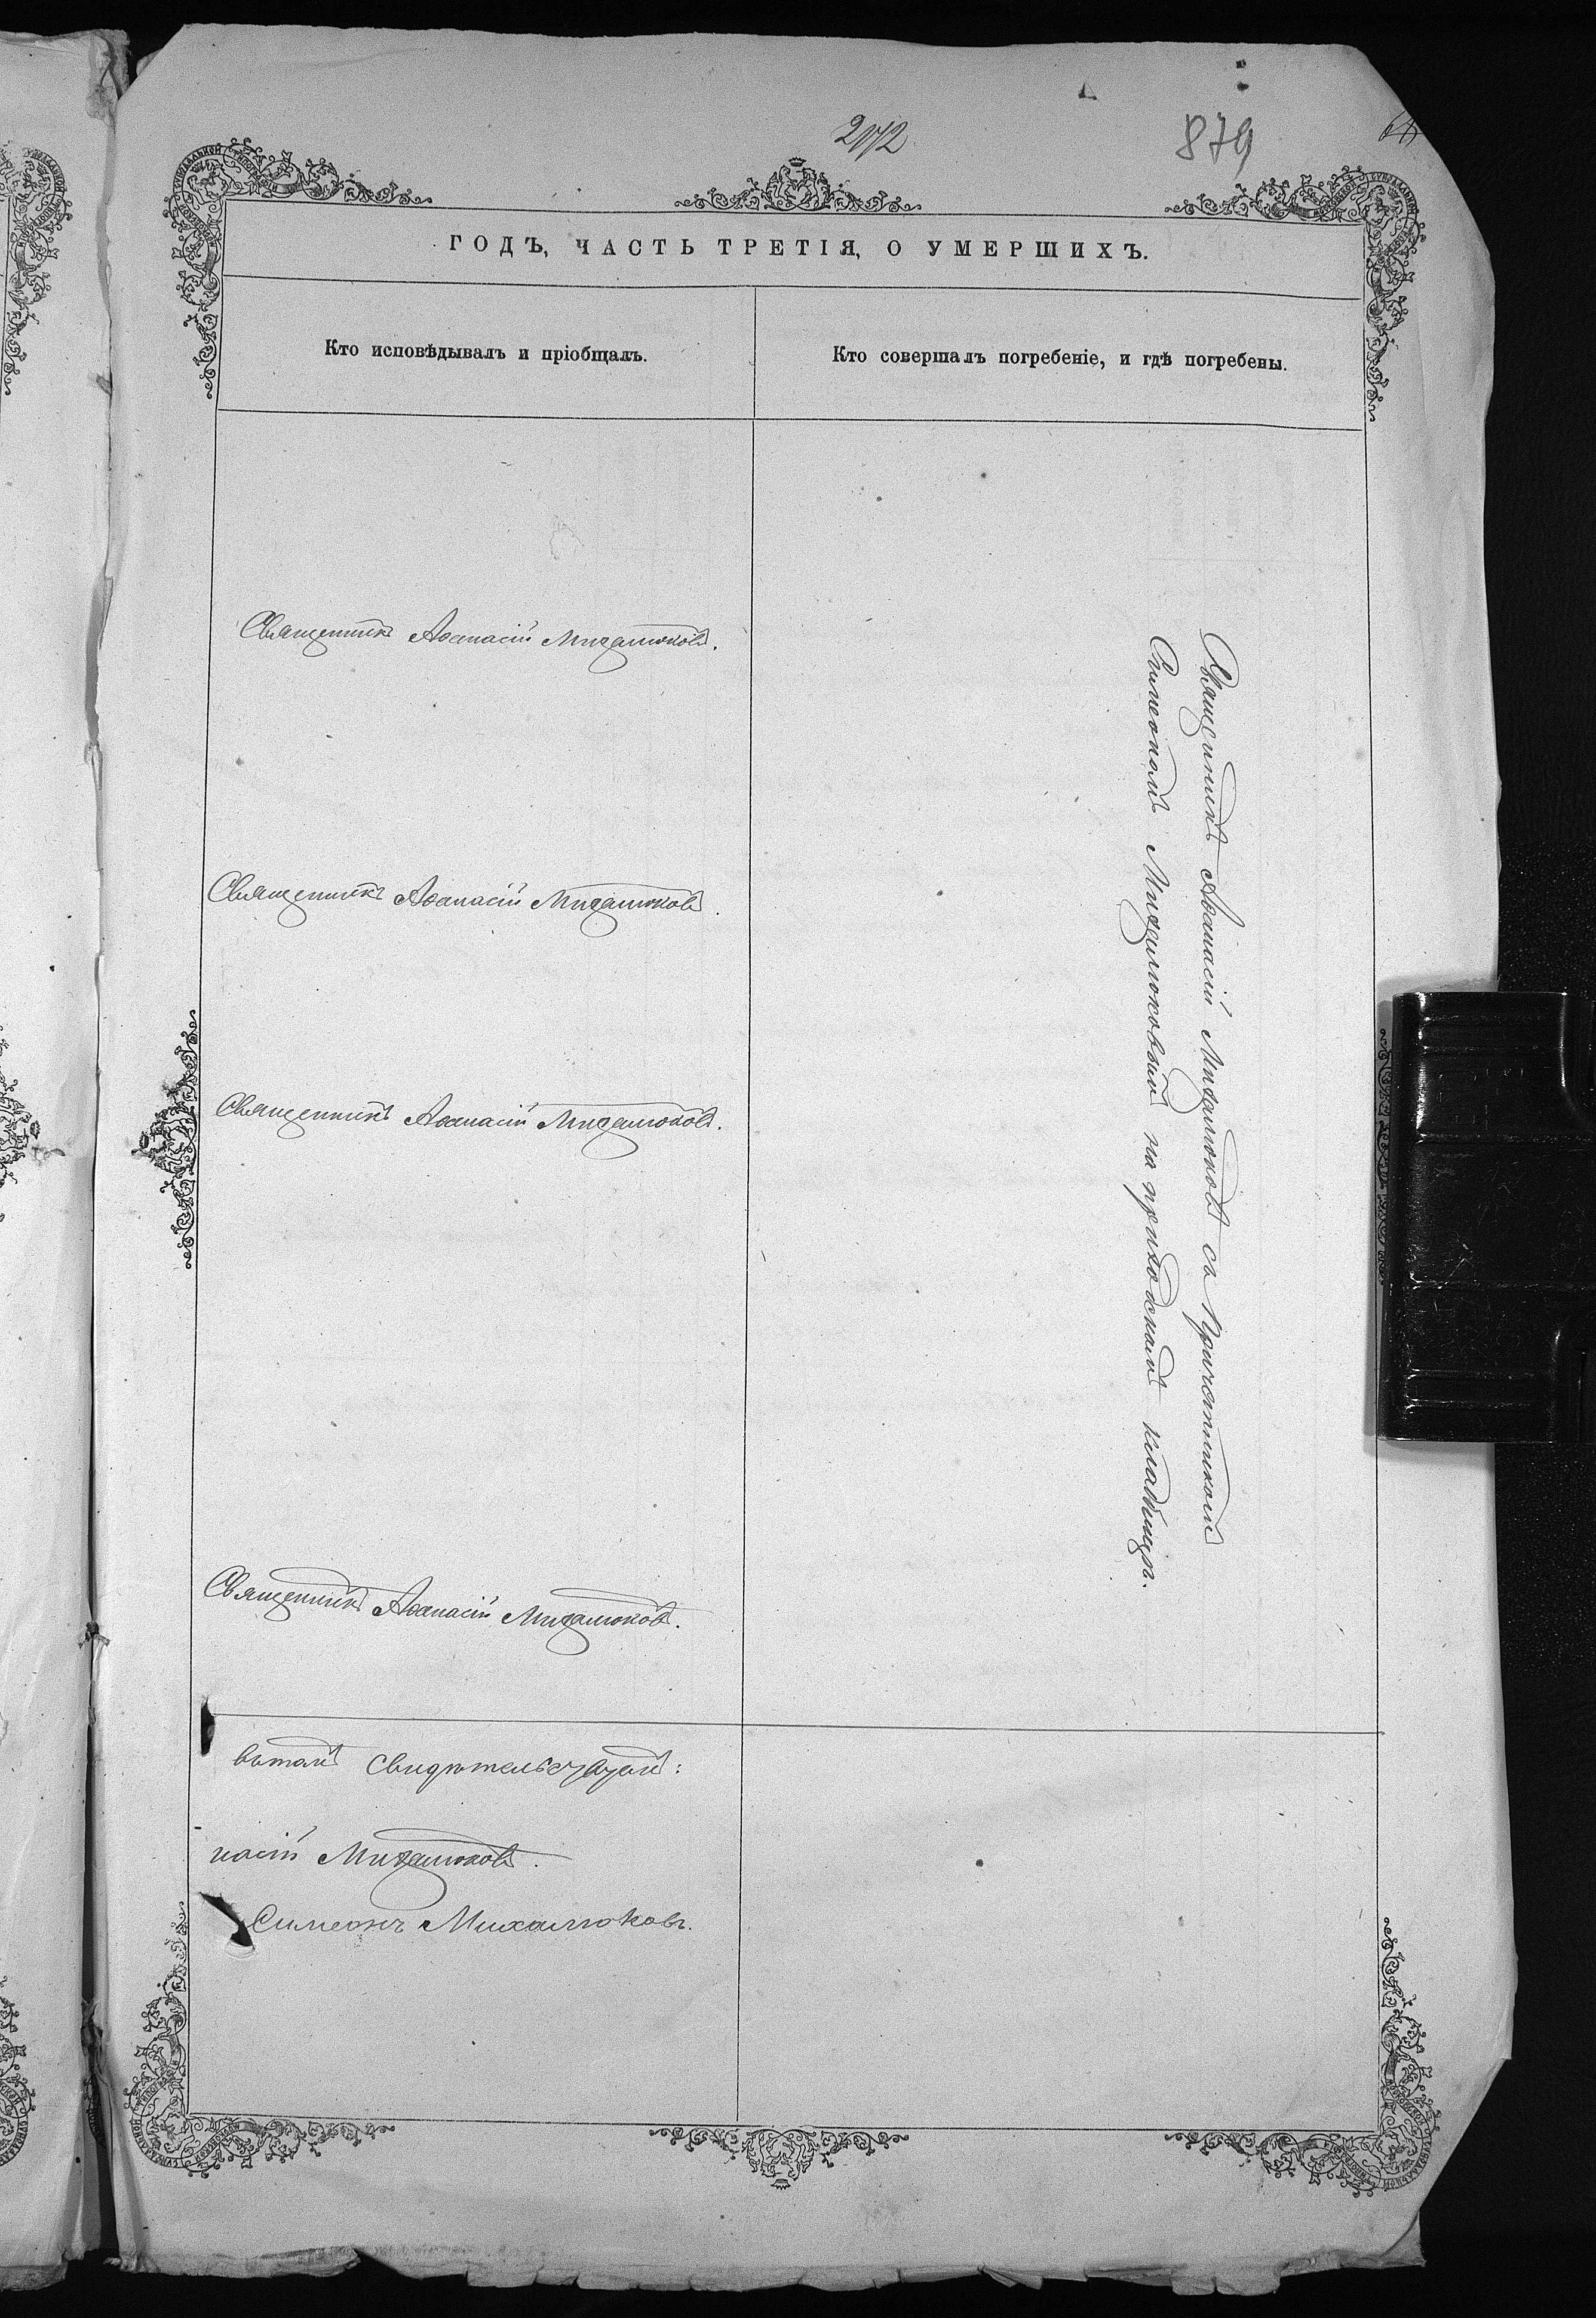 272
879
ГОДЪ, ЧАСТЬ ТРЕТІЯ, О УМЕРШИХЪ.
Кто исповѣдывалъ и пріобщалъ.
Кто совершалъ погребеніе, и гдѣ погребены.
Священникъ Аѳанасій Михалюковъ.
Священникъ Аѳанасій Михалюковъ.
Священникъ Аѳанасій Михалюковъ.
Священникъ Аѳанасій Михалюковъ.
Священникъ Аѳанасій Михалюковъ съ Причетникомъ
Симеономъ Михалюковымъ на приходскомъ кладбищѣ.
вътомъ свидѣтельствуемъ:
насій Михалюковъ.
Симеонъ Михалюковъ.